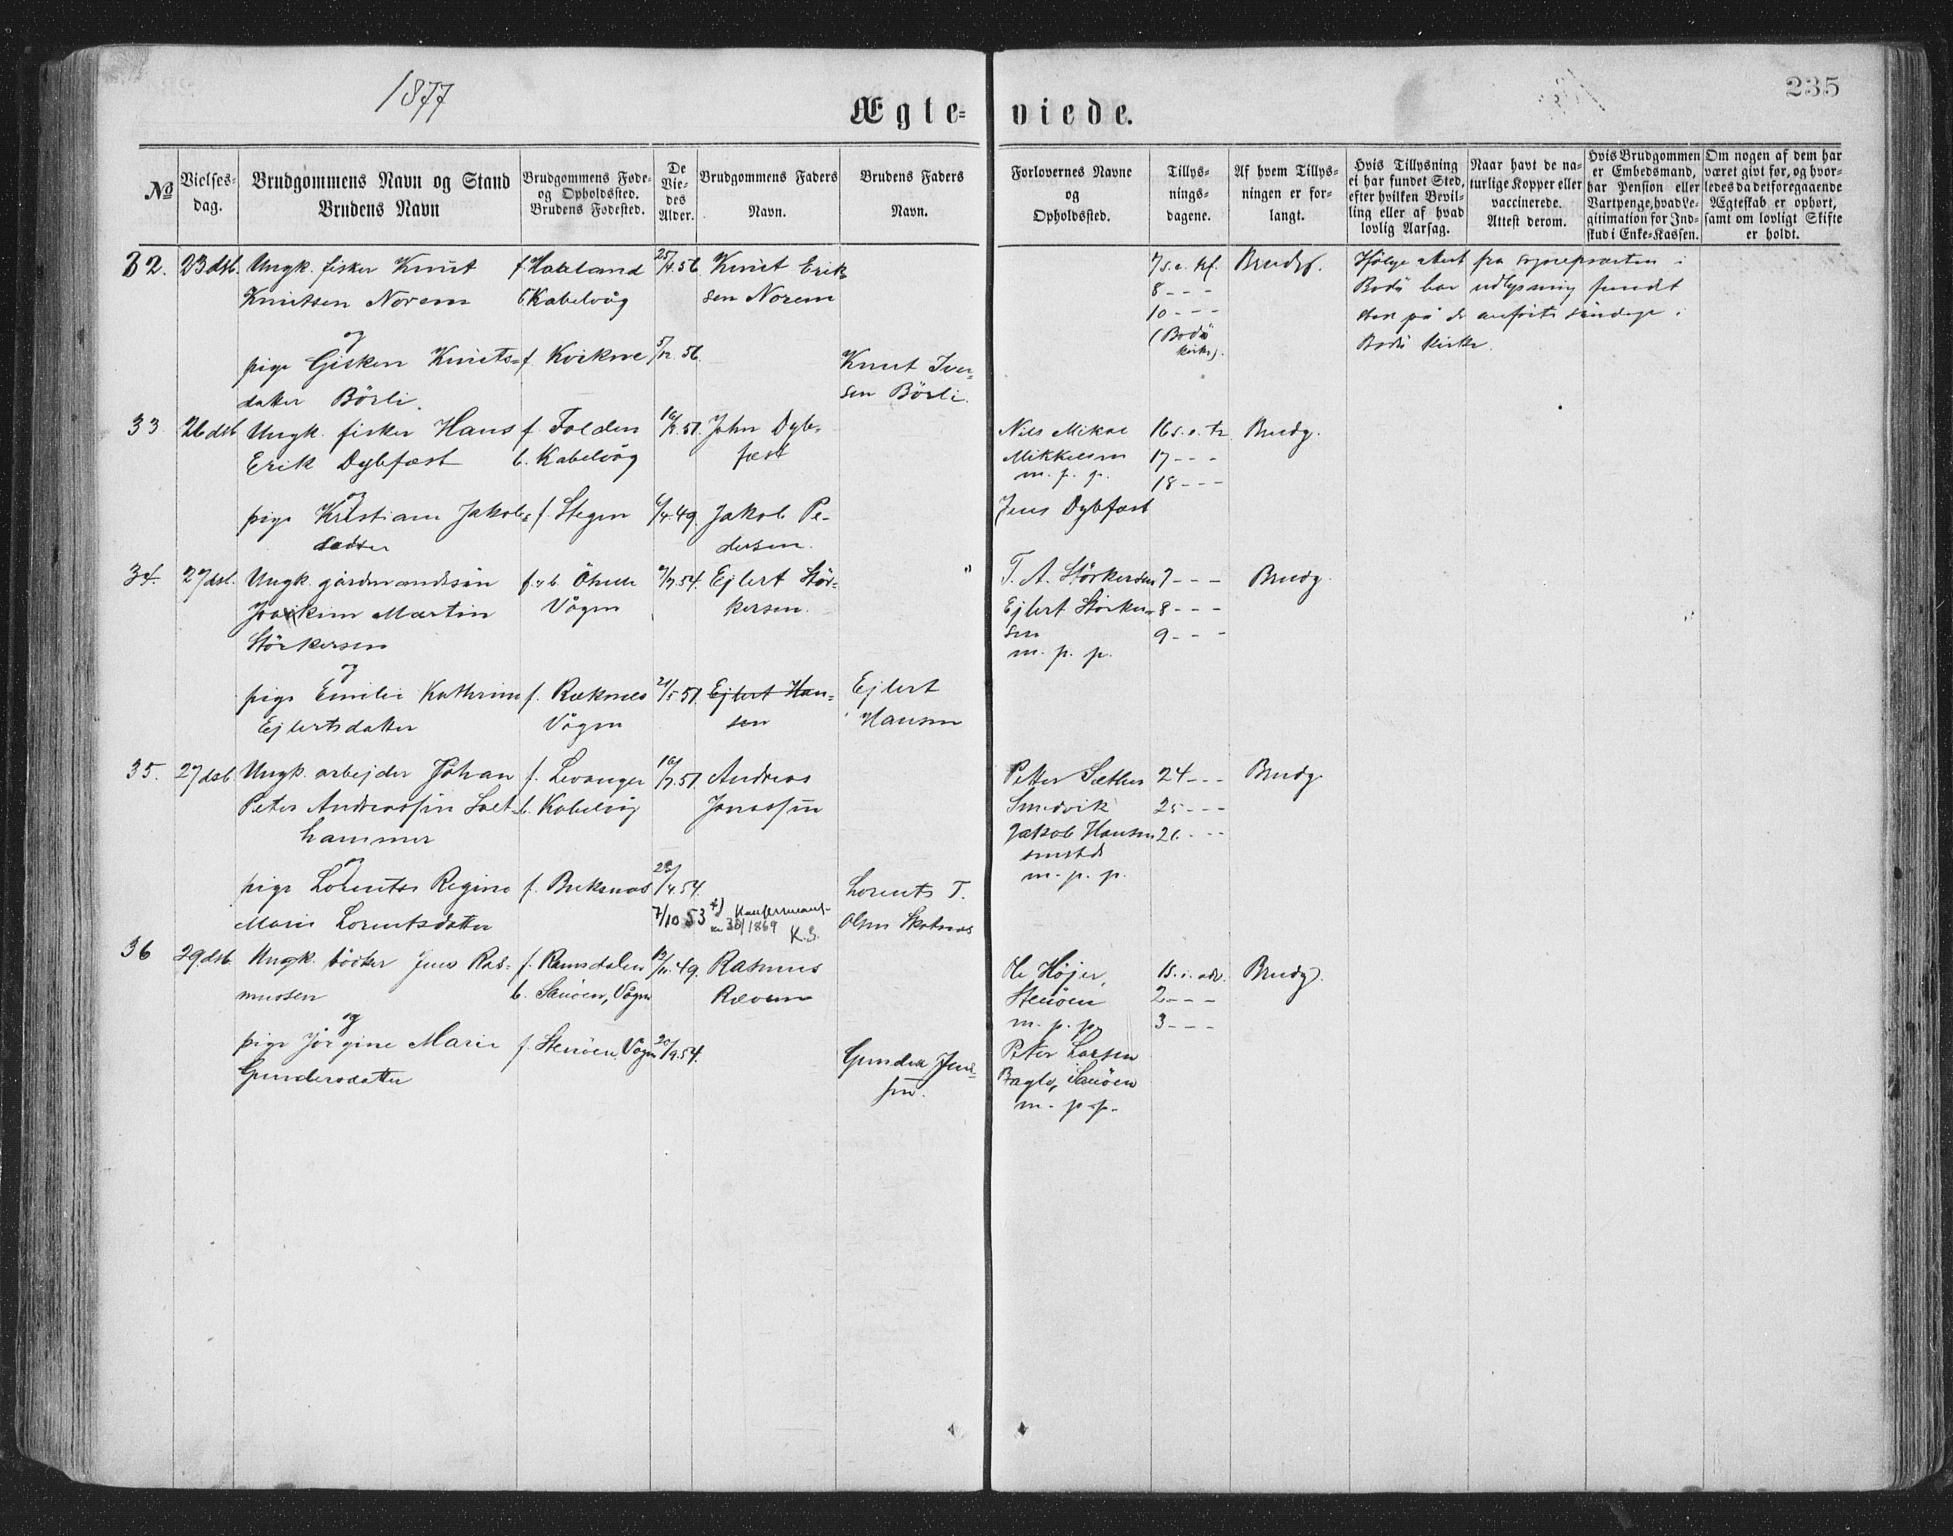 1877
235
Ægte- viede.
No
Vielses-
dag.
Brudgommens Navn og Stand
Brudens Navn
Brudgommens Føde-
og Opholdssted.
Brudens Fødested.
De
Vie-
des
Alder.
Brudgommens Faders
Navn.
Brudens Faders
Navn.
Forlovernes Navne
og
Opholdssted.
Tillys-
nings-
dagene.
Af hvem Tillys-
ningen er for-
langt.
Hvis Tillysning
ei har fundet Sted,
efter hvilken Bevil-
ling eller af hvad
lovlig Aarsag.
Naar havt de na-
turlige Kopper eller
vaccinerede.
Attest derom.
Hvis Brudgommen
er Embedsmand,
har Pension eller
Vartpenge, hvad Le-
gitimation for Ind-
skud i Enke-Kassen.
Om nogen af dem har
været gift før, og hvor-
ledes da det foregaaende
Ægteskab er ophørt,
samt om lovligt Skifte
er holdt.
32. 23 dsb. Ungk. fisker Knut
Knutsen Norem
og
pige Gisken Knuts-
datter Börli.
f. Kabelvåg
f. Kvikne
25/4.56
5/12.56.
Knut Erik-
sen Norem
Knut Iver-
sen Börli.
7 s. e. 
8 - - -
10 - - -
(Bodö
kirke).
Brudg.
Ifölge attest fra sognepræsten i
Bodö har udlysning fundet
sted på de anförte söndage i
Bodö kirke.
33. 26 dsb. Ungk. fisker Hans
Erik Dybfæst
og
pige Kristiane Jakobs
datter
f. Folden
b. Kabelvåg
f. Stegen
51.
6/4.49.
John Dyb-
fæst
Jakob Pe-
dersen.
Nils Mikal
Mikkelsen
m. p. p.
Jens Dybfæst
16 s. e. tr.
17 - - -
18 - - -
Brudg.
34. 27 dsb. Ungk. gårdmandssön
Joakim Martin
Störkersen
og
pige Emilie Kathrine
Ejlertsdatter
f. & b.
Vågen
f. Ræknes
Vågen
54.
21/5.51.
Ejlert Stör-
kersen.
Ejlert Han-
sen
"
Ejlert
Hansen
T. A. Störkersen
Ejlert Störker-
sen
m. p. p.
7 - - -
8 - - -
9 - - -
Brudg.
35. 27 dsb. Ungk. arbejder Johan
Peter Andreassen Salt-
hammer
og
pige Lorentse Regine
Marie Lorentsdatter
f. Levanger
b. Kabelvåg
f. Buksnæs
51.
28/4.54.
7/10 53 +) Konfirmeret
30/1869 K.S.
Andreas
Jonassen
Lorents T.
Olsen Skotnæs
Petter Sæther
Smedvik
Jakob Hansen
smstds
m. p. p.
24 - - -
25 - - -
26 - - -
Brudg.
36 29 dsb. Ungk. bödker Jens Ras-
mussen
og
pige Jörgine Marie
Gundersdatter
f. Ramsdalen
b. Sauöen, Vågen
f. Stenöen, Vågen
49.
20/9.54.
Rasmus
Ræven
Gunder Jens-
sen.
Ole Höjer,
Stenöen
m. p. p.
Peter Larsen
Baglo, Sauöen
m. p. p.
1 s. i. adv.
2 - - -
3 - - -
Brudg.